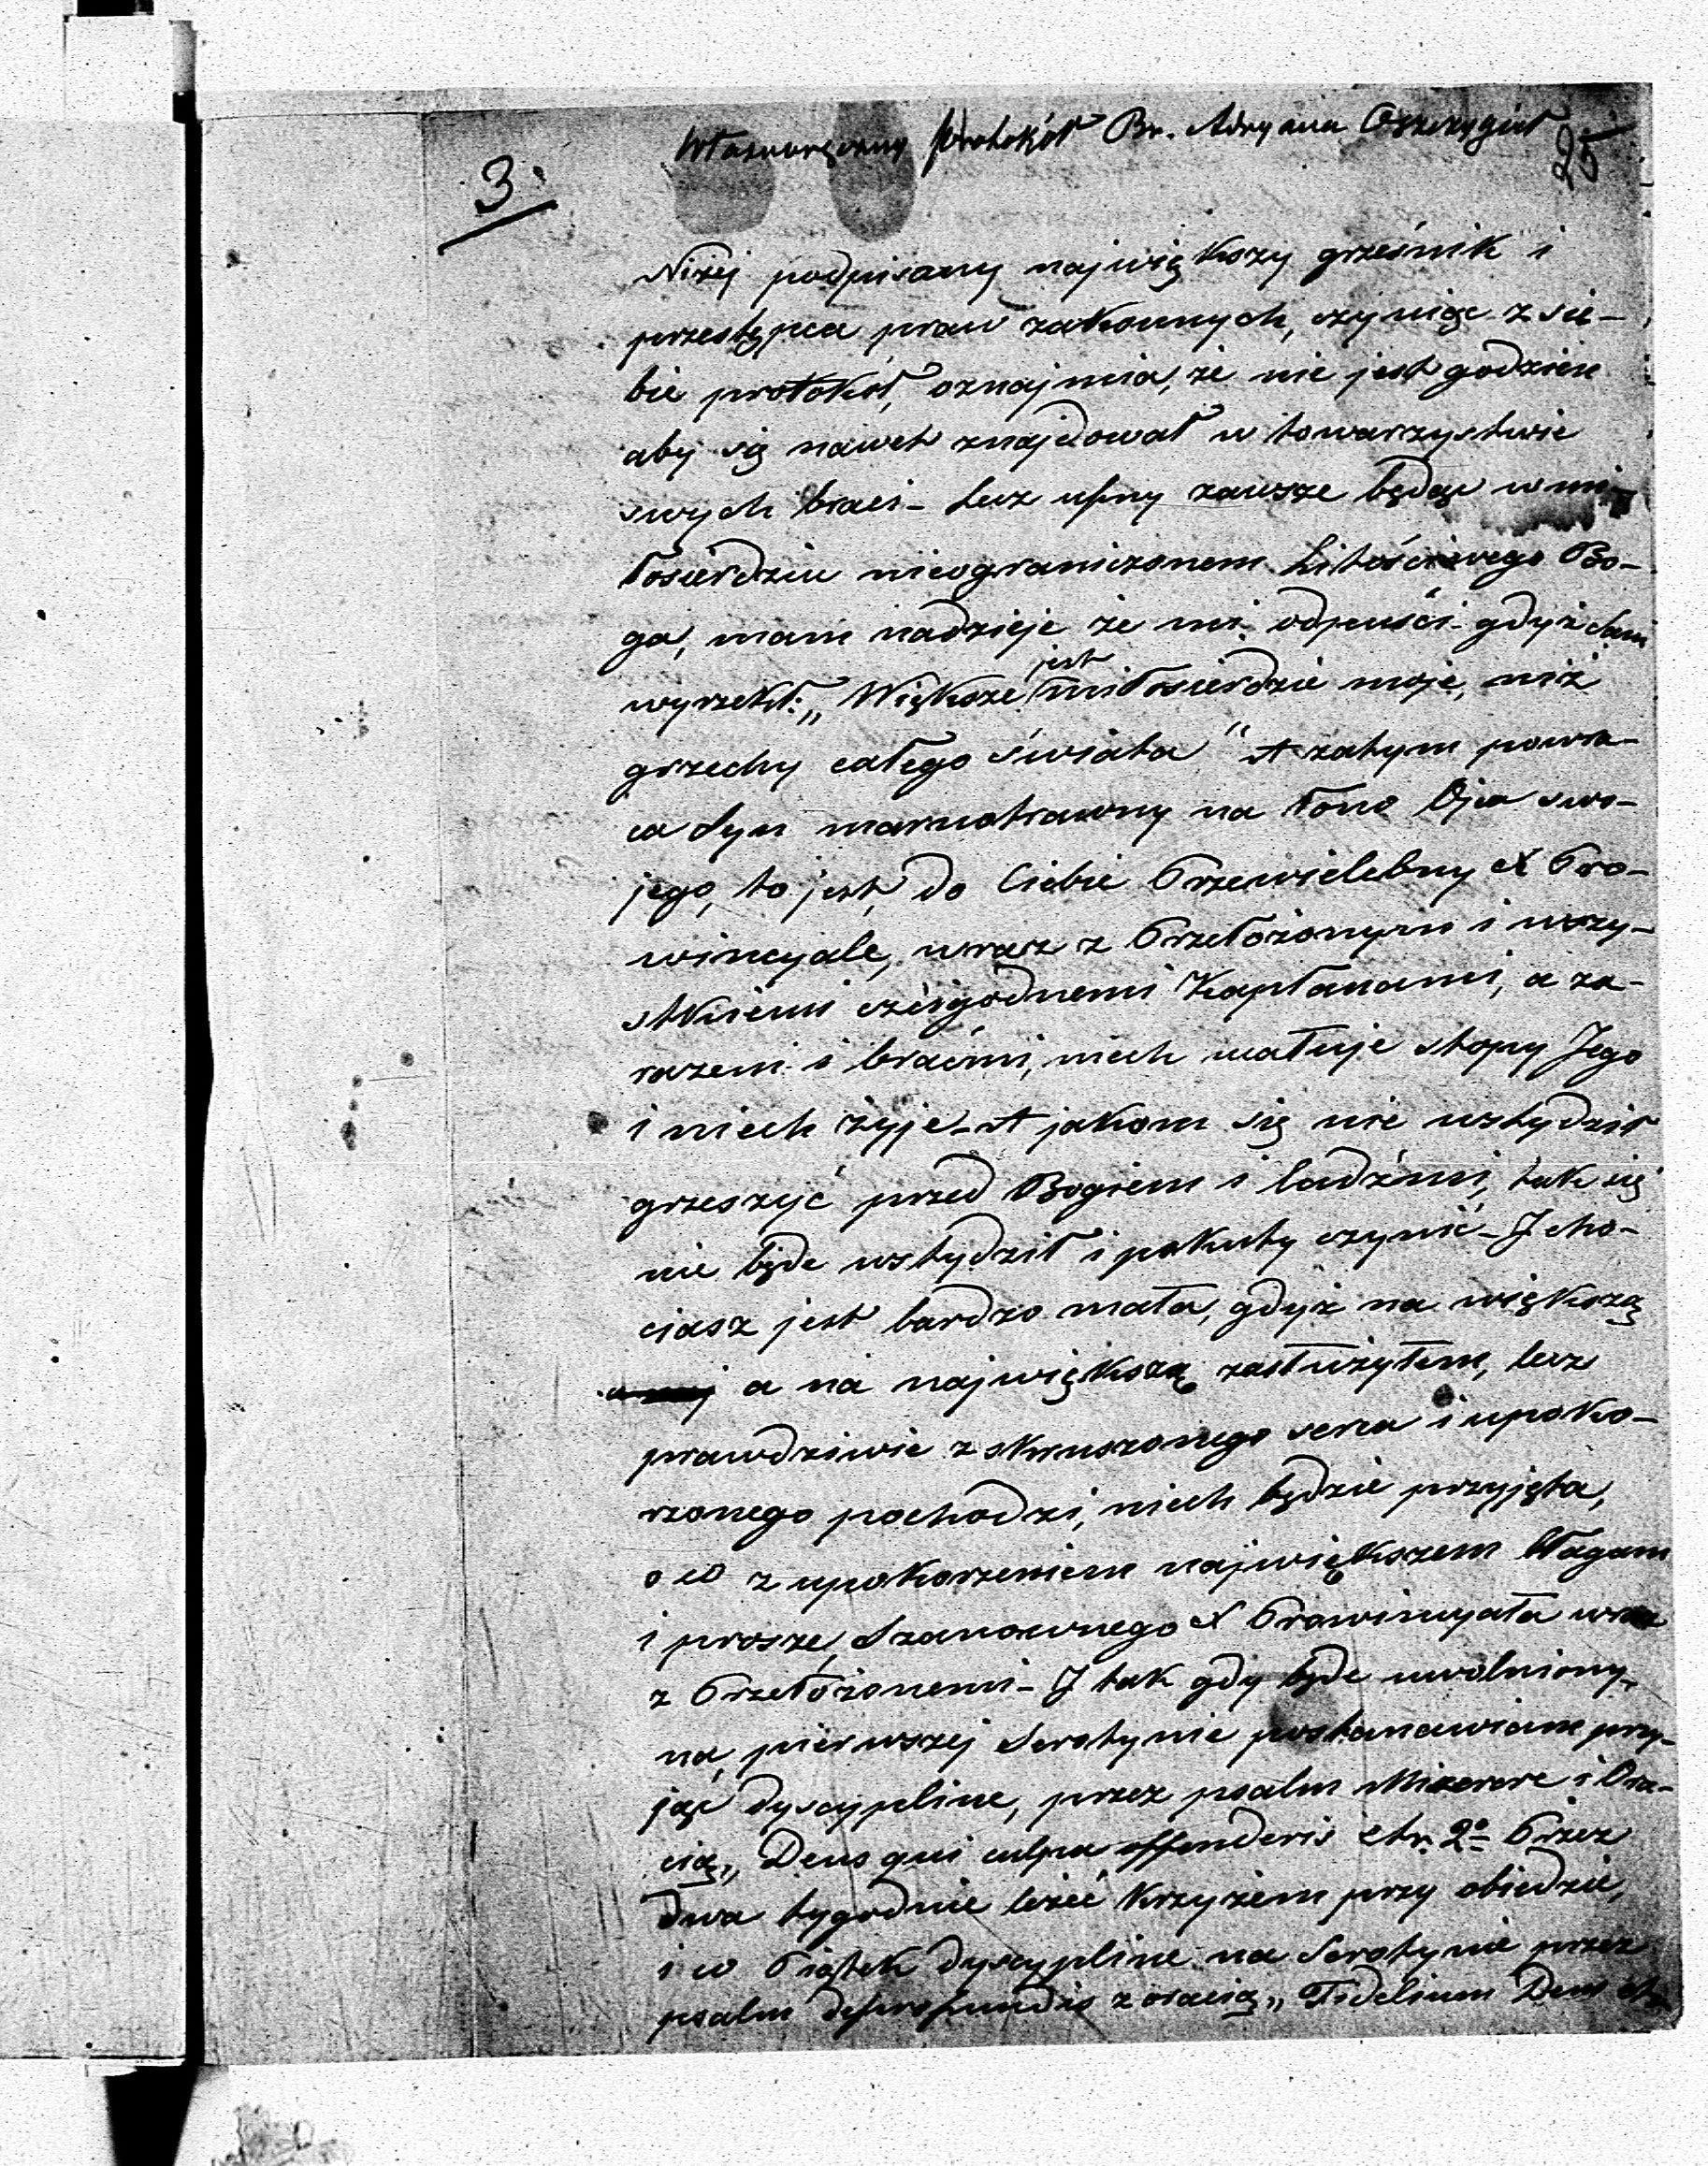 Własnoręczny protokół Br. Adryana
25
3.
Niżej podpisany największy grześnik i
przestępca praw zakonnych, czyniąc z sie-
bie protokół, oznajmia, że nie jest godzien
aby się nawet znajdował w towarzystwie
swych braci - Lecz ufny zawsze będąc w mi-
łosierdziu nieograniczonem Litościwego Bo-
ga, mam nadzieje że mi odpuści - gdyż sam
wyrzekł: „Większe jest miłosierdzie moje, niż
grzechy całego świata" A zatym powra-
ca syn marnotrawny na łono Ojca swo-
jego, to jest, do Ciebie Przewielebny X Pro-
wincyale, wraz z Przełożonym i wszy-
stkiemi czcigodnemi Kapłanami, a za-
razem i braćmi, niech całuje stopy Jego
i niech żyje - A jakom się nie wstydził
grzeszyć przed Bogiem i ludźmi, tak się
nie będe wstydził i pokuty czynić - I cho-
ciasz jest bardzo mała, gdyż na większą
a na największą zasłużyłem, lecz
prawdziwie z skruszonego serca i upoko-
rzonego pochodzi, niech będzie przyjęta,
o co z upokorzeniem największem błagam
i prosze, Szanownego X Prowincyała wraz
z Przełożonemi - I tak gdy będe uwolniony,
na pierwszej Serotynie postanawiam przy-
jąć dyscypline, przez psalm Mizerere i Ora-
cią „Deus qui culpa offenderis etr. 2° Przez
dwa tygodnie leżeć krzyżem przy obiedzie,
i co Piątek dyscypline na Serotynie przez
psalm deprofundis z oracią „Fidelium Deus etr